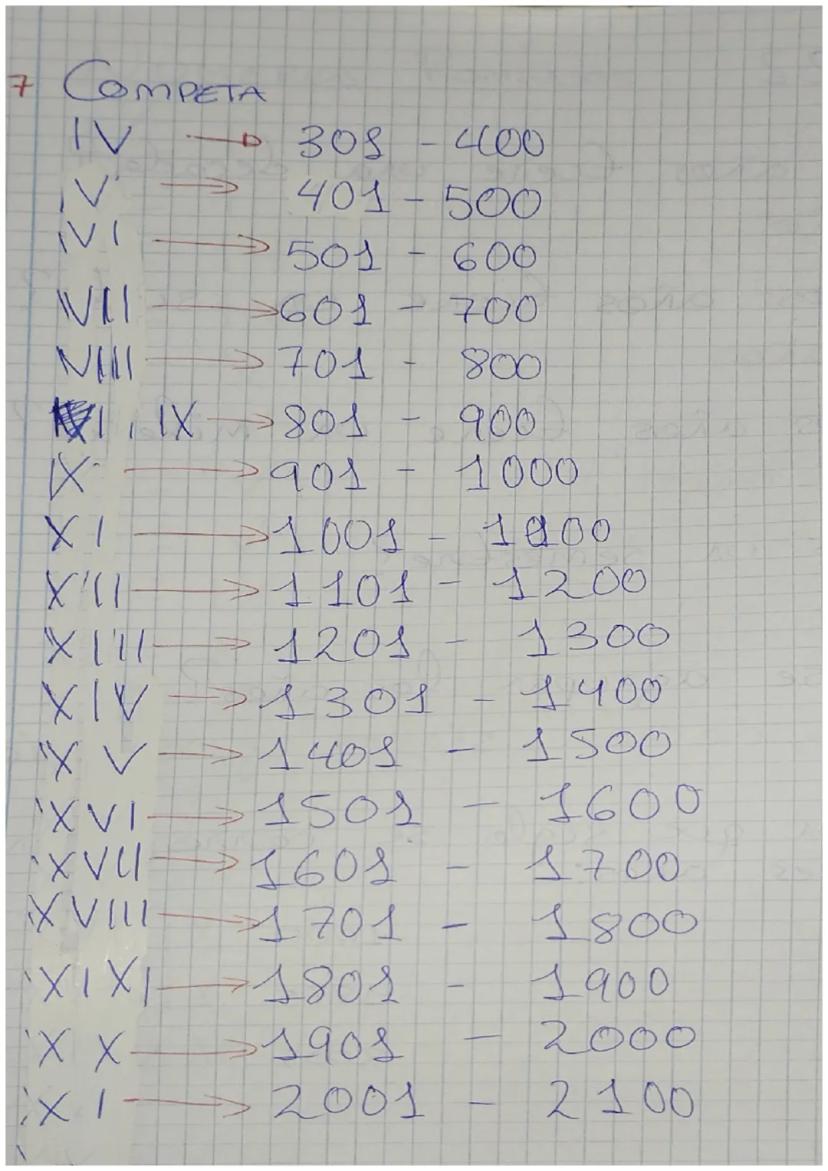 7 COMPETA
IV → 301 - 400
V → 401 - 500
VI → 501 - 600
VII → 601 - 700
VIII → 701 - 800
IX → 801 - 900
IX → 901 - 1000
XI → 1001 - 1100
XII → 1101 - 1200
XIII → 1201 - 1300
XIV → 1301 - 1400
XV → 1401 - 1500
XVI → 1501 - 1600
XVII → 1601 - 1700
XVIII → 1701 - 1800
XIXI → 1801 - 1900
XX → 1901 - 2000
XI → 2001 - 2100